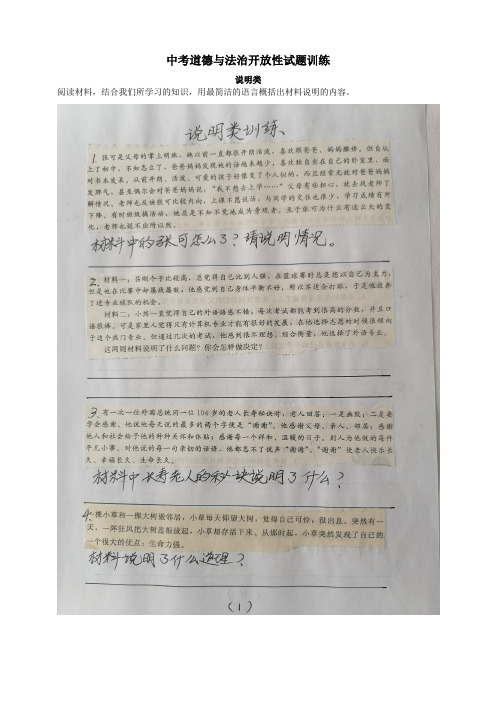 中考道德与法治开放性试题训练
说明类
阅读材料，结合我们所学习的知识，用最简洁的语言概括出材料说明的内容。
说明类训练、
1. 张可是父母的掌上明珠，她以前一直都很开朗活泼，喜欢跟爸爸、妈妈撒娇。但自从
上了初中，不知怎么了，爸爸妈妈发现她的话越来越少，喜欢独自坐在自己的卧室里，面
对书本发呆。从前开朗、活泼、可爱的孩子好像变了个人似的，而且经常无故对爸爸妈妈
发脾气。甚至偶尔会对爸爸妈妈说：“我不想去上学……”父母有些担心，就去找老师了
解情况。老师也反映张可比较内向，上课不愿说话，与同学的交往也很少，学习成绩有所
下降。有时班级搞活动，她总是不知不觉地成为旁观者。至于张可为什么有这么大的变
化，老师也说不出所以然。
材料中的张可怎么了？请说明情况。
2. 材料一：吕刚个子比较高，总觉得自己比别人强，在篮球赛时总是想以自己为主力，
但是他在比赛中却屡战屡败，他感觉到自己身体平衡不好，所以不适合打球，于是他放弃
了进专业球队的机会。
材料二：小然一直觉得自己的外语语感不错，每次考试都能考到很高的分数，并且口
语很棒。可是家里人觉得只有计算机专业才能有很好的发展，在他选择志愿的时候很倾向
于这个热门专业。但通过几次的考试，他感到很不理想。综合衡量，他选择了外语专业。
这两则材料说明了什么问题？你会怎样做决定？
3. 有一次一位外国总统问一位104岁的老人长寿秘诀时，老人回答：一是幽默；二是要
学会感谢。他说他每天说的最多的两个字便是“谢谢”。他感谢父母、亲人、邻居；感谢
他人和社会给予他的种种关怀和体贴；感谢每一个祥和、温暖的日子。别人为他做的每件
平凡小事、对他说的每一句亲切的话语，他都忘不了说声“谢谢”。“谢谢”使老人快乐长
久、幸福长久、生命长久。
材料中长寿老人的秘诀说明了什么？
4. 棵小草和一棵大树做邻居，小草每天仰望大树，觉得自己可怜，没出息。突然有一
天，一阵狂风把大树连根拔起，小草却存活下来。从那时起，小草突然发现了自己的
一个很大的优点：生命力强。
材料说明了什么道理？
（1）